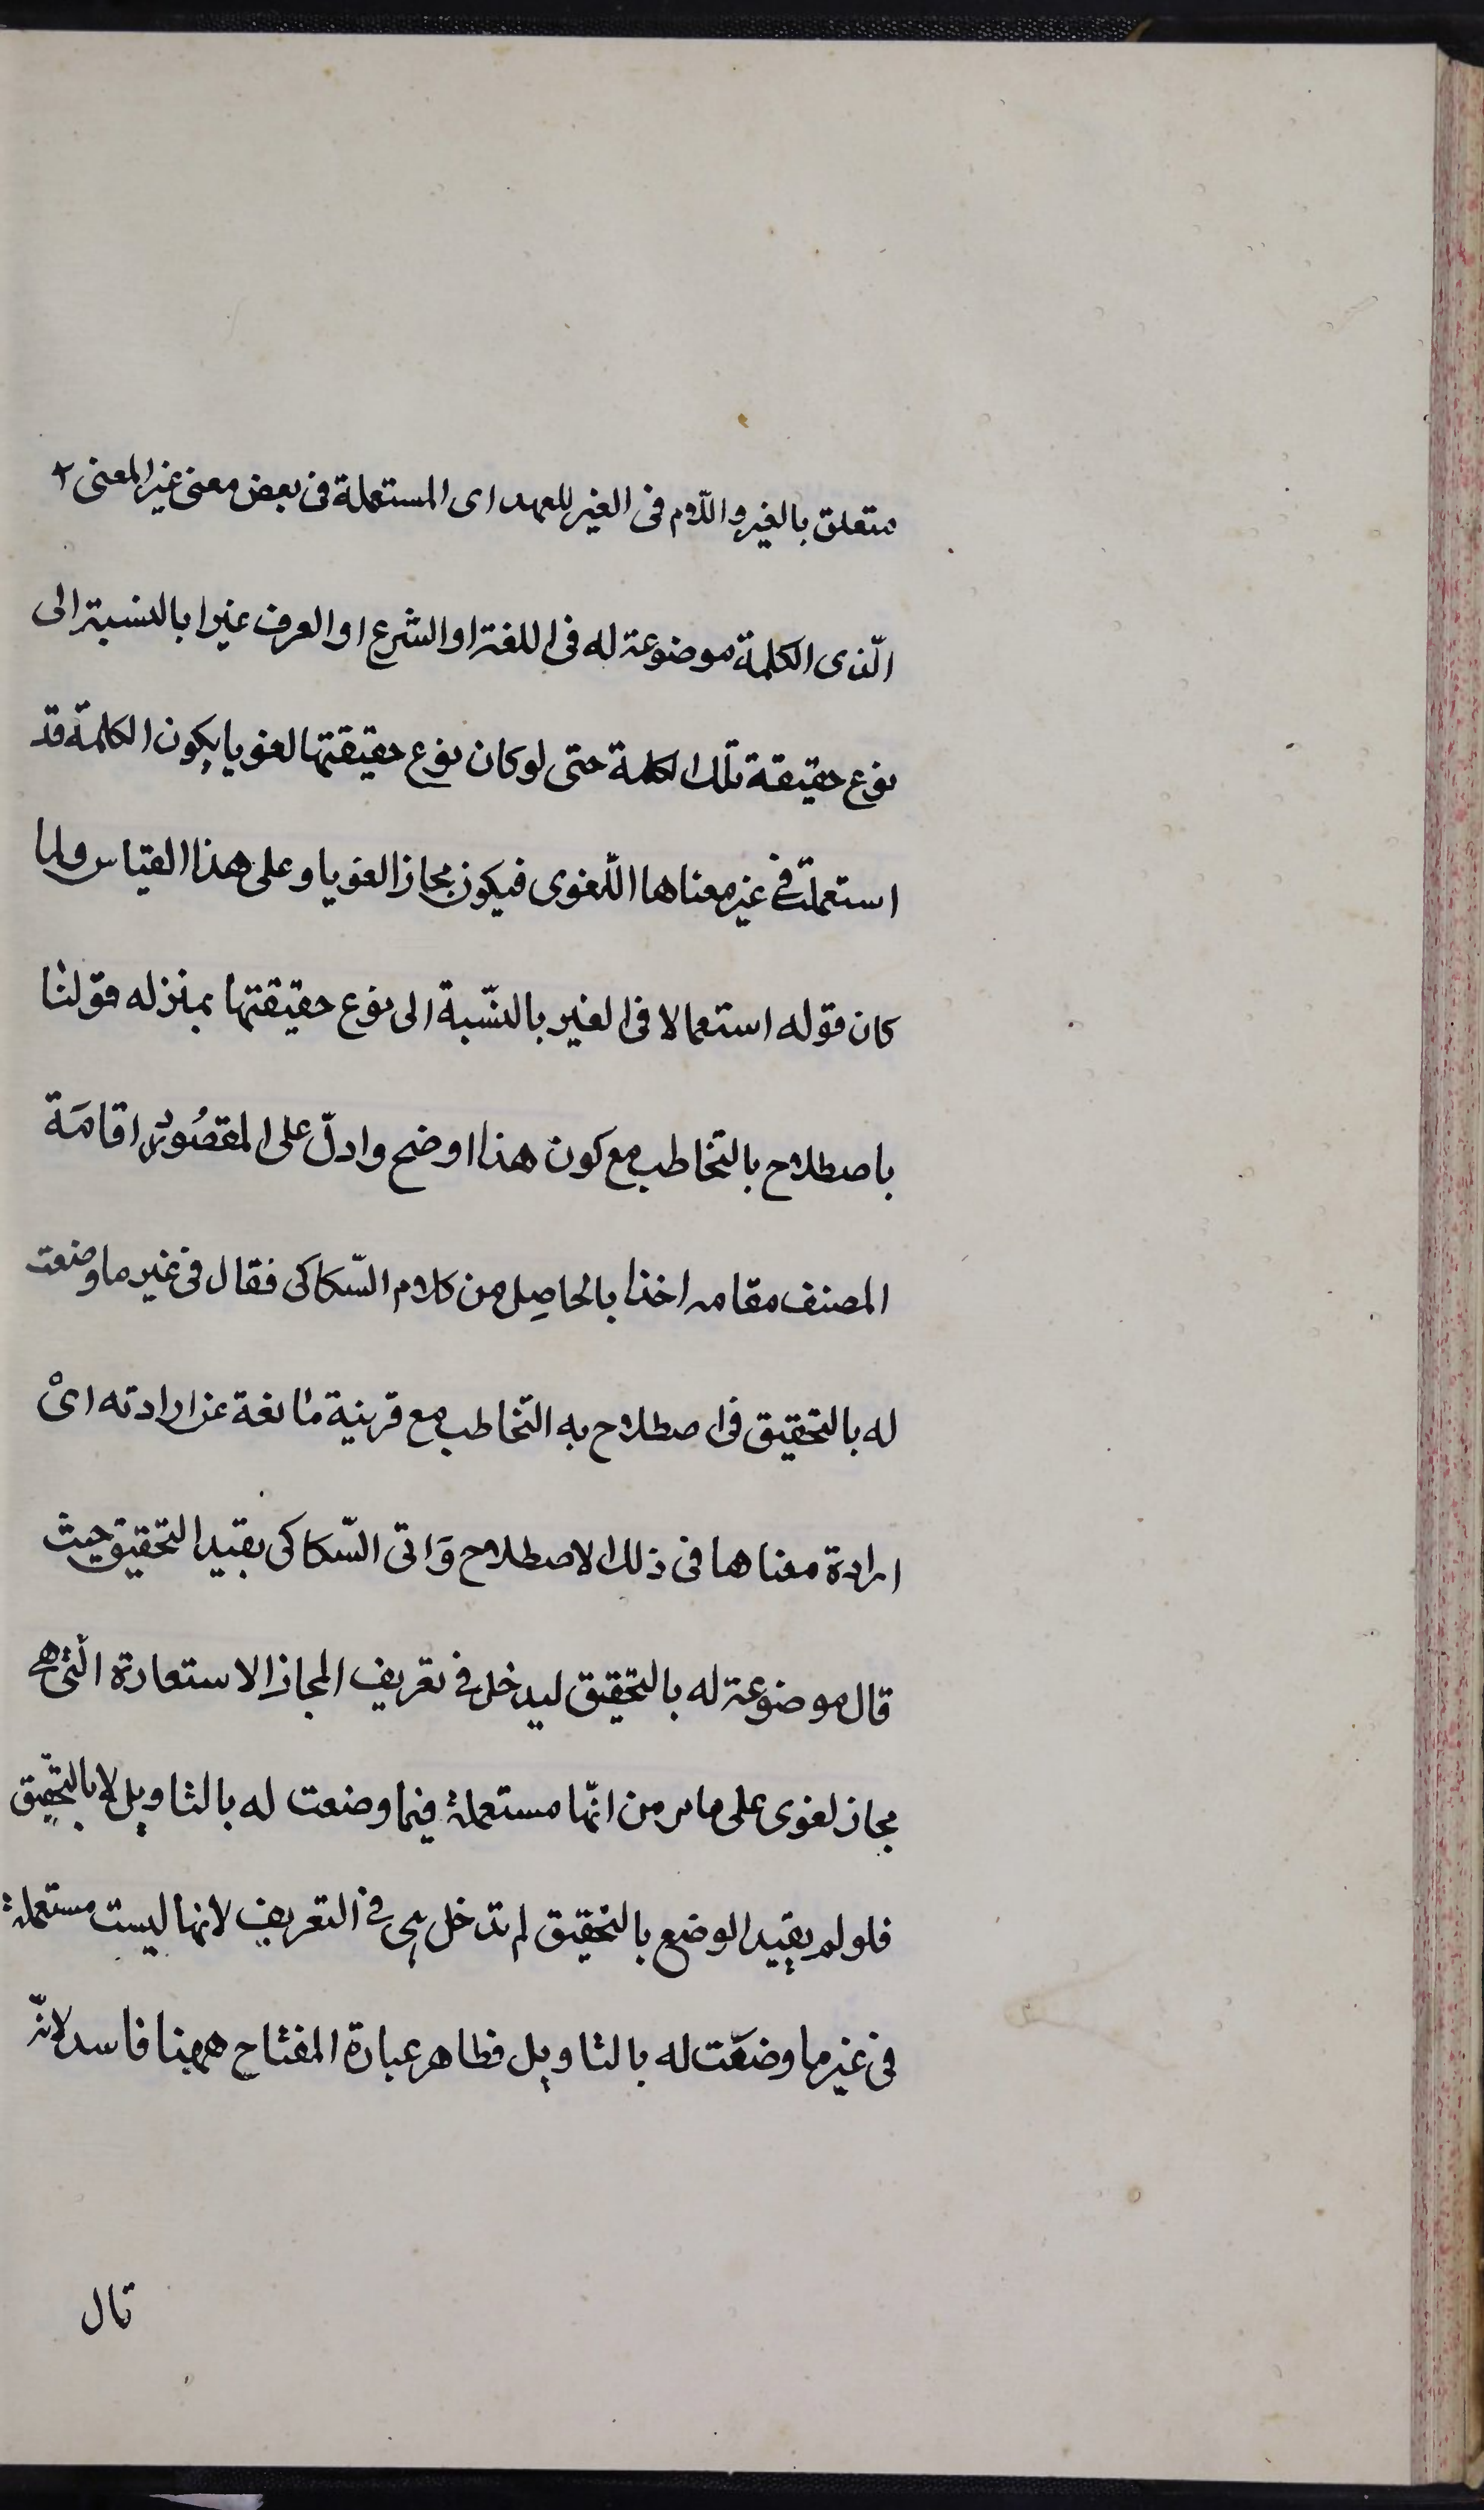 متعلق بالغير واللام فى الغير للعهد اى المستعملة فى بعض معنى غير المعنى ٢
الّذى الكلمة موضوعة له فى اللغة او الشرع او العرف غيرا بالنسبة الى
نوع حقيقة تلك الكلمة حتى لو كان نوع حقيقتها لغويا يكون الكلمة قد
استعملت فى غير معناها اللّغوى فيكون مجازا لغويا وعلى هذا القياس ولما
كان قوله استعمالا فى الغير بالنّسبة الى نوع حقيقتها بمنزله قولنا
باصطلاح بالتخاطب مع كون هذا اوضح وادلّ على المقصُود اقامَة
المصنف مقامه اخذا بالحاصِل من كلام السّكاكى فقال فى غير ما وضعت
له بالتحقيق فى اصطلاح به التخاطب مع قرينة مانعة عن ارادته اىْ
ارادة معناها فى ذلك الاصطلاح وَاتى السّكاكى بقيد التحقيق حيث
قال موضوعة له بالتحقيق ليدخل فى تعريف المجاز الاستعارة الّتى هى
مجاز لغوى على ما مر من انّها مستعملة فيما وضعت له بالتاويل لا بالتحقيق
فلو لم يقيد الوضع بالتحقيق لم تدخل هى فى التعريف لانها ليست مستعملة
فى غير ما وضعَت له بالتاويل فظاهر عبارة المفتاح ههنا فاسد لانّه
قال